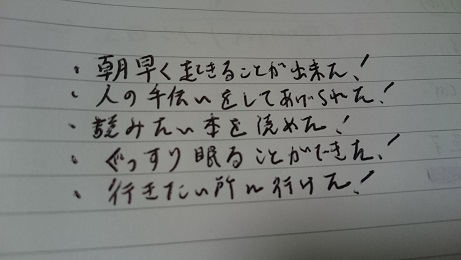 ・朝早く起きることが出来た！
・人の手伝いをしてあげられた！
・読みたい本を読めた！
・ぐっすり眠ることができた！
・行きたい所へ行けた！